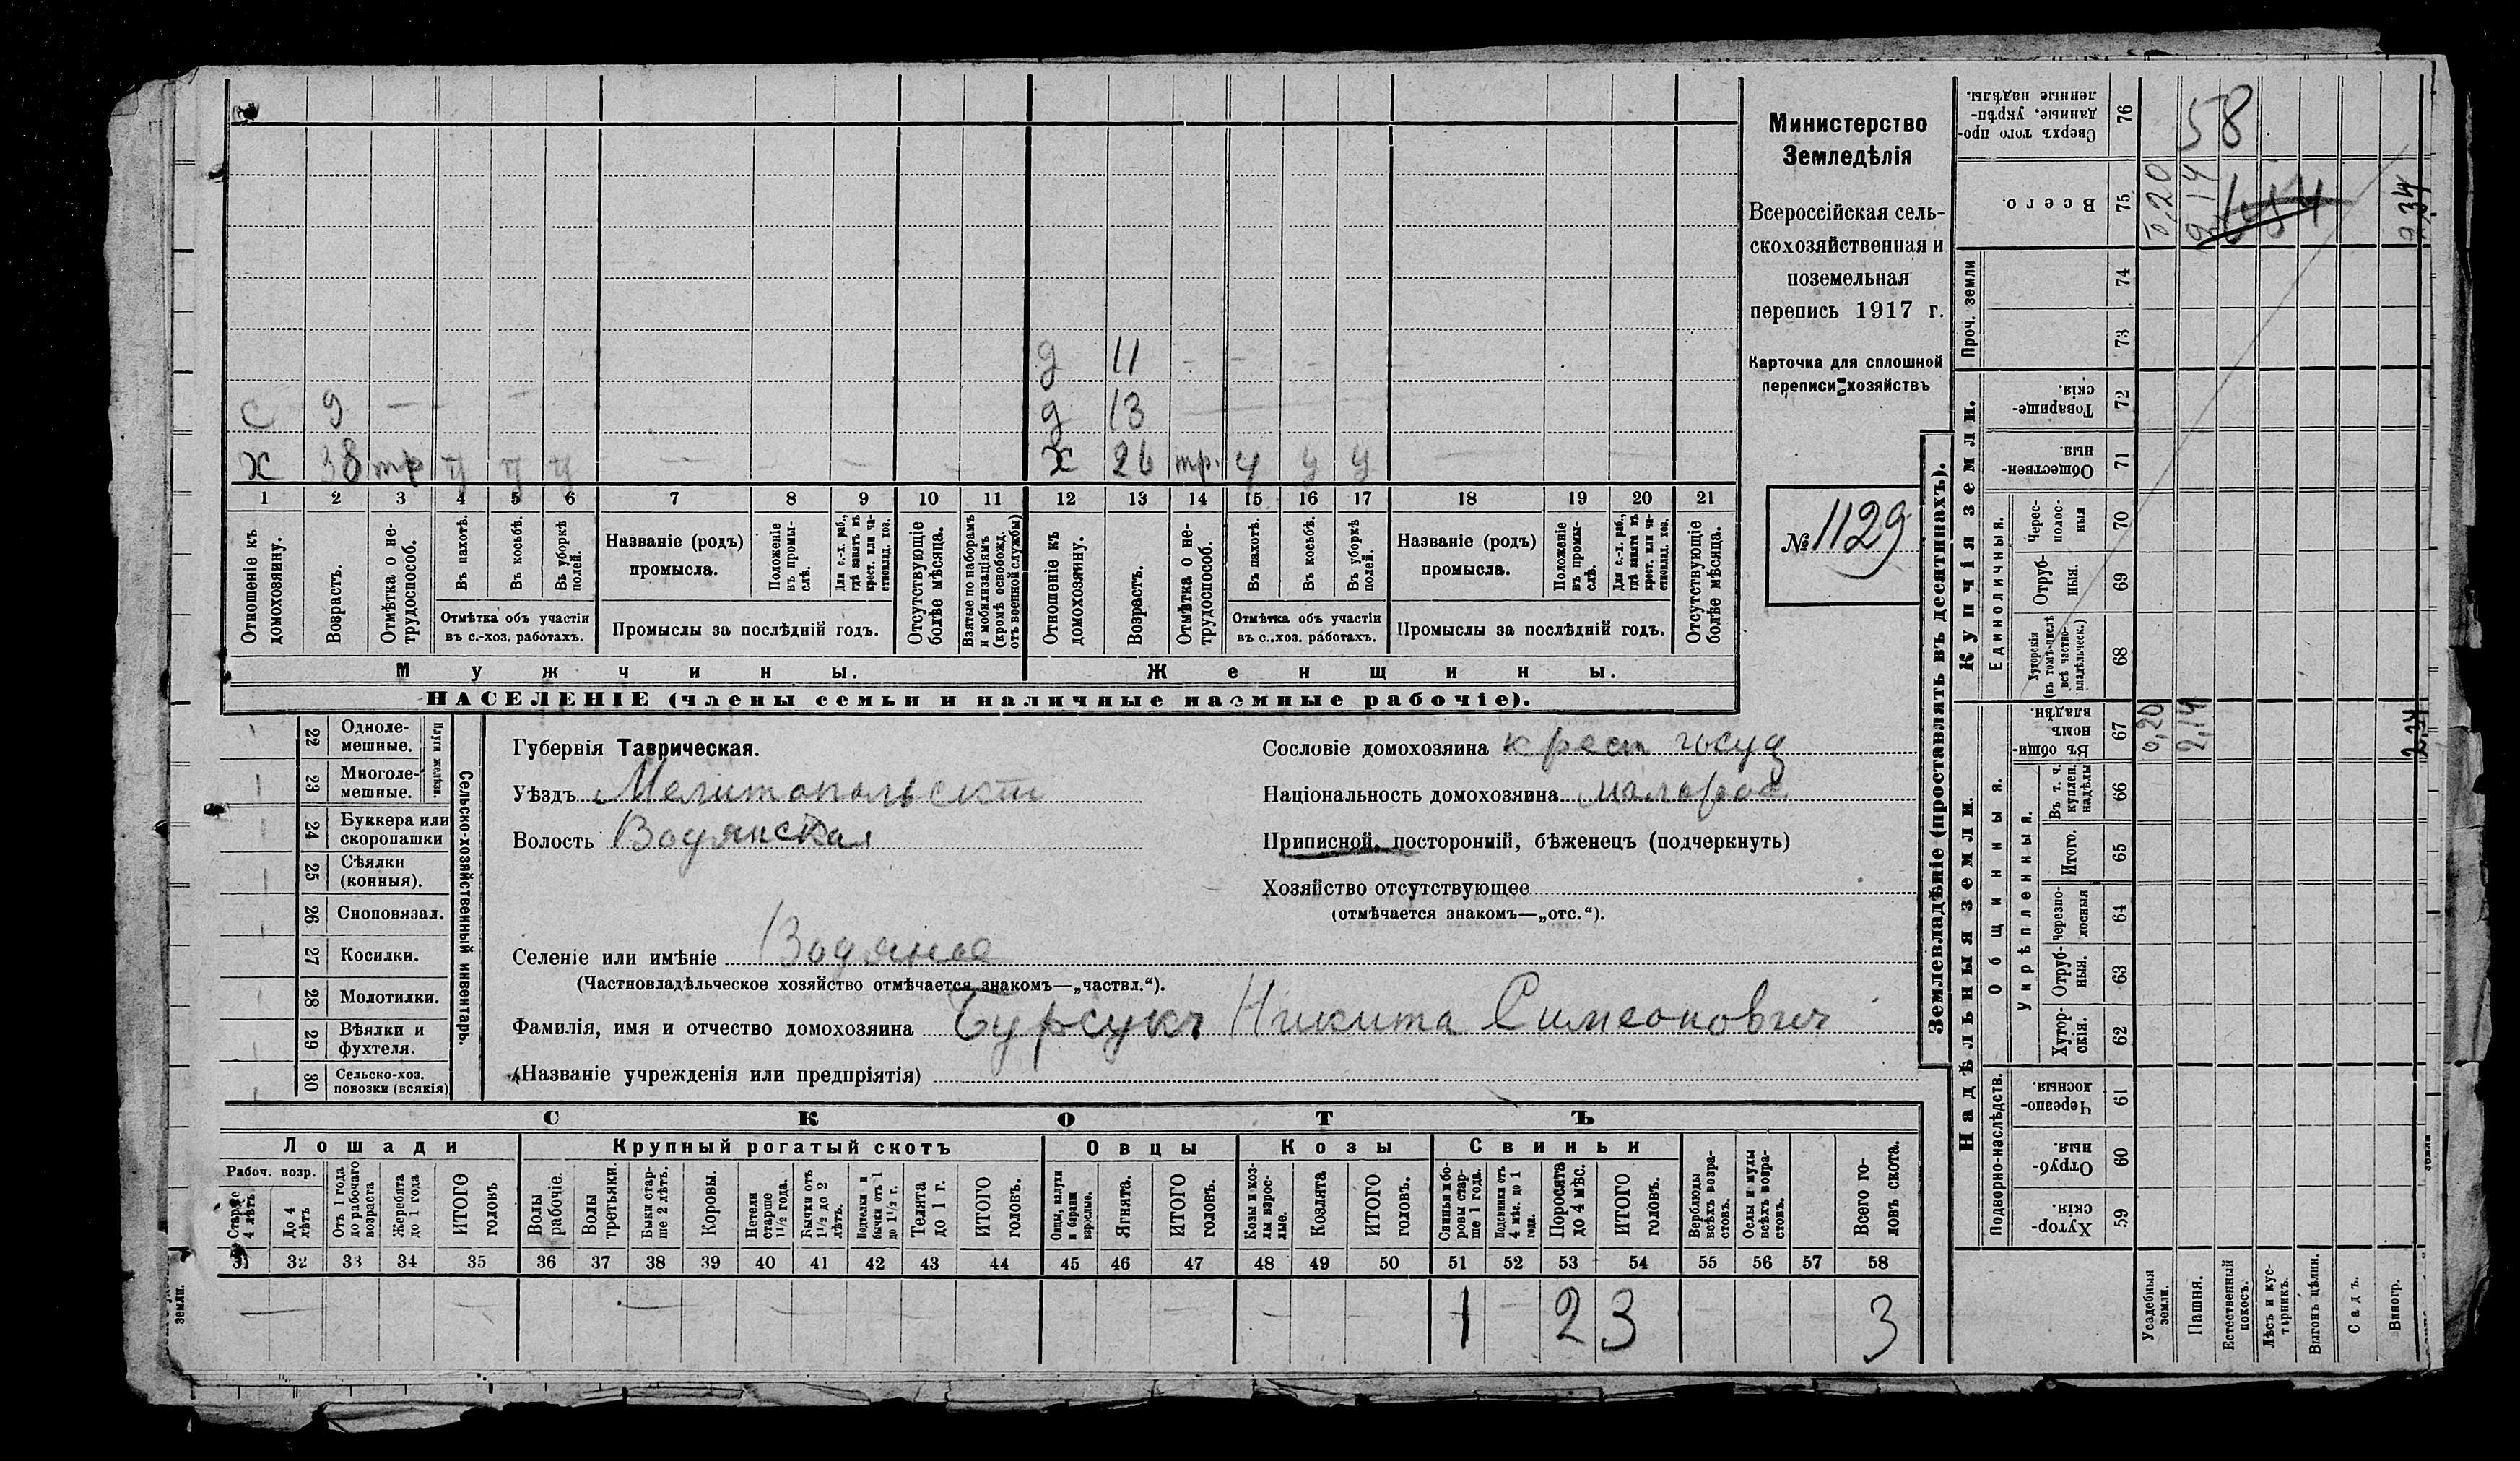 д 11 - -
с 9 - - д 13
х 38 тр ч ч ч - - - - х 26 тр. ч ч ч - -
1 2 3 4 5 6 7 8 9 10 11 12 13 14 15 16 17 18 19 20 21
Отношеніе къ домохозяину.
Возрастъ.
Отмѣтка о нетрудоспособ.
Въ пахотѣ.
Въ косьбѣ.
Въ уборкѣ полей.
Отмѣтка объ участіи
въ с.-хоз. работахъ.
Названіе (родъ)
промысла.
Положеніе въ промыслѣ.
Для с.-х. раб., гдѣ занятъ въ крест. или частновлад. хоз.
Промыслы за послѣдній годъ.
Отсутствующіе болѣе мѣсяца.
Взятые по наборамъ и мобилизаціямъ (кромѣ освобожд. отъ военной службы)
Отношеніе къ домохозяину.
Возрастъ.
Отмѣтка о нетрудоспособ.
Въ пахотѣ.
Въ косьбѣ.
Въ уборкѣ полей.
Отмѣтка объ участіи
въ с.-хоз. работахъ.
Названіе (родъ)
промысла.
Положеніе въ промыслѣ.
Для с.-х. раб., гдѣ занята въ крест. или частновлад. хоз.
Промыслы за послѣдній годъ.
Отсутствующіе болѣе мѣсяца.
Мужчины. Женщины.
НАСЕЛЕНІЕ (члены семьи и наличные наемные рабочіе).
Министерство
Земледѣлія
Всероссійская сель-
скохозяйственная и
поземельная
перепись 1917 г.
Карточка для сплошной
переписи хозяйствъ
№ 1129
22 Одноле-
мешные.
23 Многоле-
мешные.
Плуги желѣзн.
24 Буккера или
скоропашки
25 Сѣялки
(конныя).
26 Сноповязал.
27 Косилки.
28 Молотилки.
29 Вѣялки и
фухтеля.
30 Сельско-хоз.
повозки (всякія)
Сельско-хозяйственный инвентарь.
Губернія Таврическая.
Уѣздъ Мелитопольскій
Волость Водянская
Селеніе или имѣніе Водяное
(Частновладѣльческое хозяйство отмѣчается знакомъ—„частвл.“).
Фамилія, имя и отчество домохозяина Бурсукъ Никита Симеонович
(Названіе учрежденія или предпріятія)
Сословіе домохозяина крест госуд
Національность домохозяина малорос
Приписной, посторонній, бѣженецъ (подчеркнуть)
Хозяйство отсутствующее
(отмѣчается знакомъ—„отс.“).
СКОТЪ
Лошади Крупный рогатый скотъ Овцы Козы Свиньи
Рабоч. возр.
Старше 4 лѣтъ
До 4 лѣтъ
Отъ 1 года до рабочаго возраста
Жеребята до 1 года
ИТОГО головъ
Волы рабочіе.
Волы третьяки.
Быки старше 2 лѣтъ.
Коровы.
Нетели старше 1½ года.
Бычки отъ 1½ до 2 лѣтъ.
Подтелки и бычки отъ 1 до 1½ г.
Телята до 1 г.
ИТОГО головъ.
Овцы, валухи и бараны взрослые.
Ягнята.
ИТОГО головъ.
Козы и козлы взрослые.
Козлята
ИТОГО головъ.
Свиньи и боровы старше 1 года.
Подсвинки отъ 4 мѣс. до 1 года.
Поросята до 4 мѣс.
ИТОГО головъ.
Верблюды всѣхъ возрастовъ.
Ослы и мулы всѣхъ возрастовъ.
Всего головъ скота.
31 32 33 34 35 36 37 38 39 40 41 42 43 44 45 46 47 48 49 50 51 52 53 54 55 56 57 58
1 - 2 3 3
Землевладѣніе (проставлять въ десятинахъ).
Купчія земли.
Надѣльныя земли.
Сверхъ того проданные, укрѣпленные надѣлы. 76 58
Всего. 75 0,20 2,14 2,34
Проч. земли 74 73
Товарищескія. 72
Общественныя 71
Единоличныя.
Чересполосныя 70
Отрубныя. 69
Хуторскія (въ томъ числѣ всѣ частновладѣльческ.) 68
Общинныя.
Въ общинномъ владѣн. 67 0,20 2,14 2,34
Укрѣпленныя.
Въ т. ч. куплен. надѣлы 66
Итого. 65
Черезполосныя 64
Отрубныя. 63
Хуторскія. 62
Подворно-наслѣдств.
Черезполосныя. 61
Отрубныя. 60
Хуторскія. 59
Усадебныя земли.
Пашня.
Естественный покосъ.
Лѣсъ и кустарникъ.
Выгонъ цѣлин.
Садъ.
Виногр.
земли.